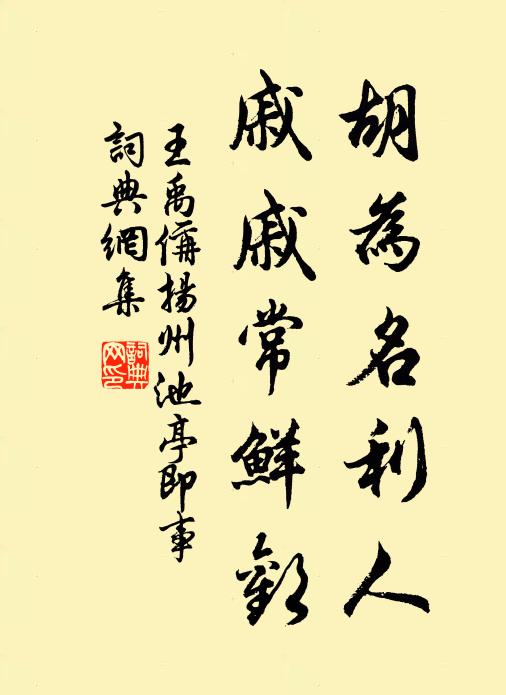 胡為名利人
戚戚常鮮歡
王禹偁揚州池亭即事
詞典網集
詞典網印